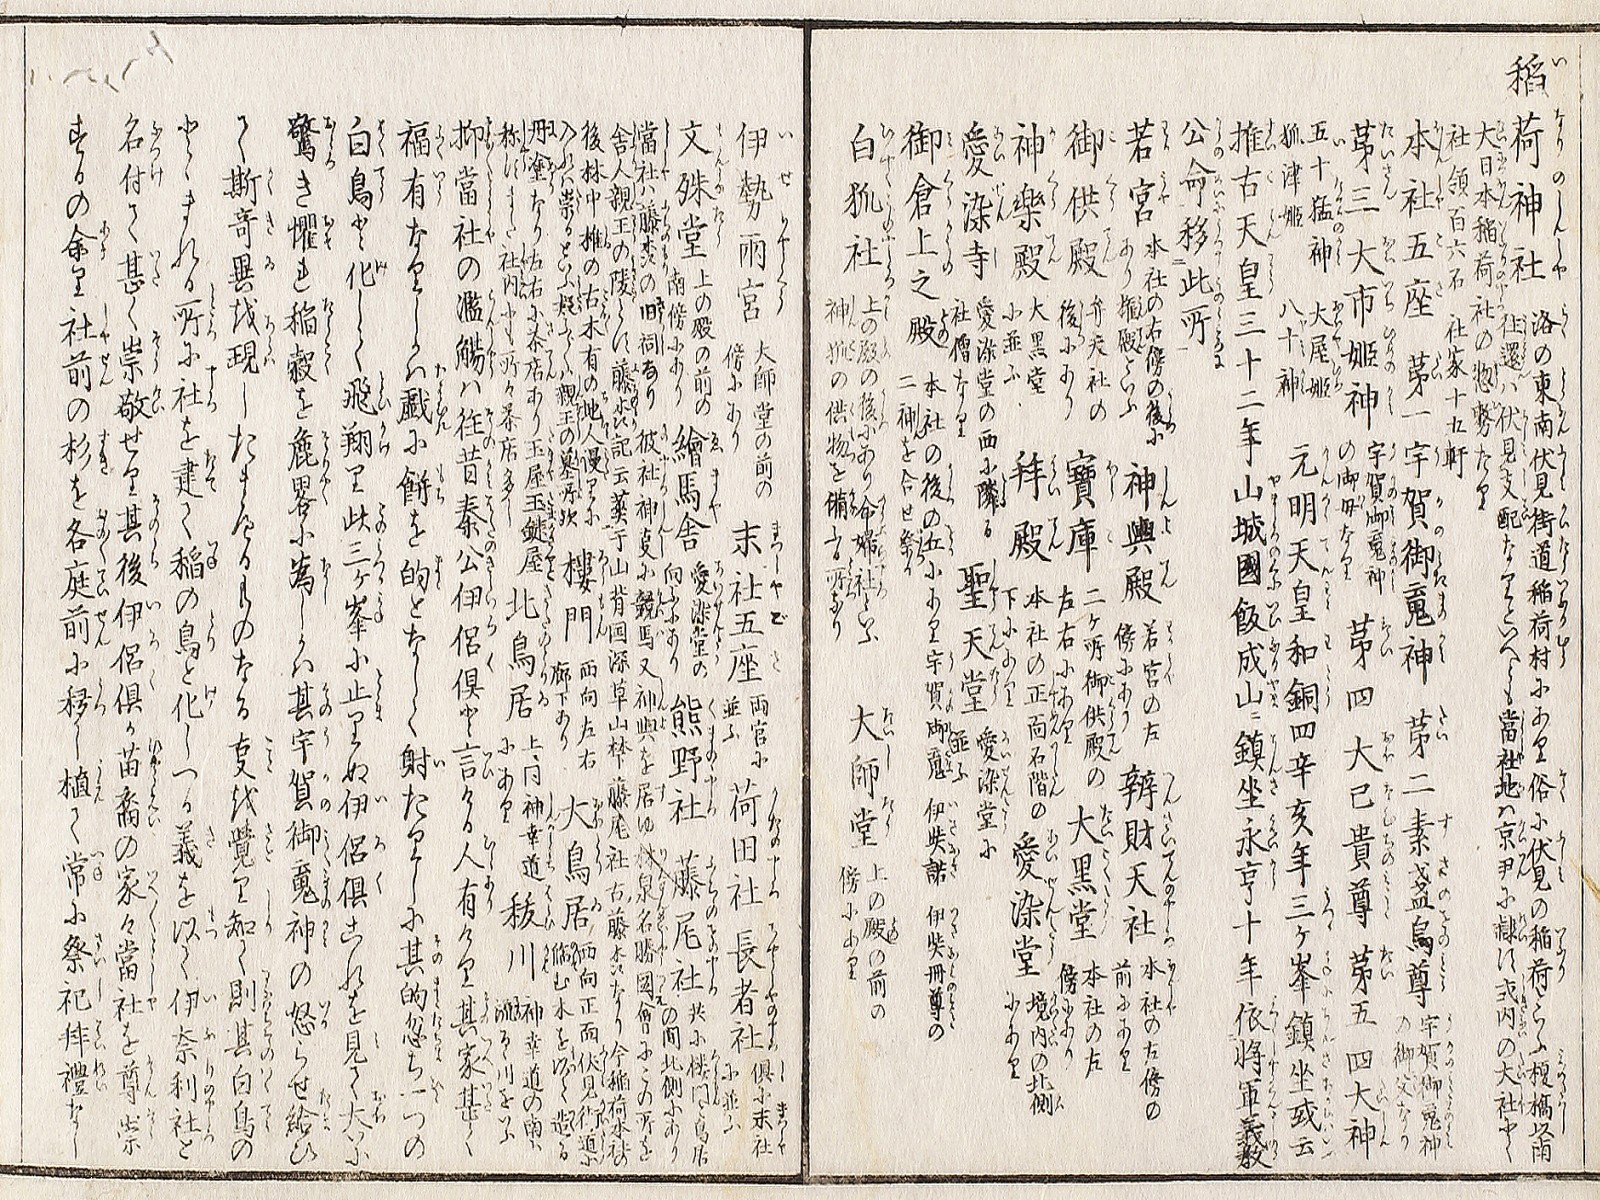 稻荷神社 洛の東南伏見街道稲荷村にあり俗に伏見の稲荷といふ榎橋以南
往還ハ伏見支配なりといへとも當社地ハ京尹に隷に式内の大社にて
大日本稲荷社の惣勢たり
社領百六石 社家十九軒
本社五座 苐一宇賀御魂神 苐二素盞烏尊 宇賀御魂神の御父なり
苐三大市姬神 宇賀御魂神の御母なり 苐四大己貴尊 苐五四大神
五十猛神 大屋姬
狐津姬 八十神
元明天皇和銅四辛亥年三ヶ峯鎮坐或云
推古天皇三十二年山城國飯成山ニ鎮坐永亨十年依將軍義教
公命移ニ此所一
若宮 本社の右傍の後にあり権殿といふ 神輿殿 若宮の左傍にあり 辨財天社 本社の左傍の前にあり
御供殿 弁天社の後にあり 寶庫 二ヶ所御供殿の左右にあり 大黒堂 本社の左傍にあり
神樂殿 大黒堂に並ふ 拜殿 本社の正面石階の下にあり 愛染堂 境内の北側にあり
愛染寺 愛染堂の西に隣る社僧なり 聖天堂 愛染堂に並ふ
御倉上之殿 本社の後の丘にあり宇賀御魂 伊奘諾 伊奘冊尊の二神を合せ祭る
白狐社 上の殿の後にあり命婦社といふ神狐の供物を備ふる所なり 大師堂 上の殿の前の傍にあり
伊勢兩宮 大師堂の前の傍にあり 末社五座 両宮に並ふ 荷田社 長者社 倶に末社に並ふ
文殊堂 上の殿の前の南傍にあり 繪馬舎 愛染堂の向ふにあり 熊野社 藤尾社 共に楼門と鳥居の間北側にあり
當社ハ藤杰の旧祠あり 彼社神夏に競馬又神輿を居ゆ 林泉名勝圖會にこの所を
舎人親王の陵とに藤杰記云葬于山背国深草山林藤尾社古藤杰なり今稲荷本社の
後林中椎の古木有の地人侵りに入れハ祟るといふ疑ふらくハ親王の墓所歟 樓門 西向左右廊下あり 大鳥居 西向正面伏見街道に臨む木を以て造る
丹塗なり左右に茶店あり玉屋玉鍵屋と称にまた社内にも所々茶店多し 北鳥居 上ノ門神幸道にあり 秡川 神幸道の南に流るゝ川をいふ
抑當社の濫觴ハ往昔秦公伊侶倶と言る人有り其家甚く
福有なりしか戯に餅を的となして射たりしに其的忽ち一つの
白鳥と化して飛翔り此三ヶ峯に止りぬ伊侶倶これを見て大に
驚き懼れ稲穀を麁畧に為しハ甚宇賀御魂神の怒らせ給ひ
て斯奇異を現したまへるものなる夏を覺り知て則其白鳥の
とゝまれる所に社を建て稲の鳥と化しつる義を以て伊奈利社と
名付て甚く崇敬せり其後伊侶倶か苗裔の家々當社を尊崇
するの余り社前の杉を各庭前に移し植て常に祭祀拜禮なし